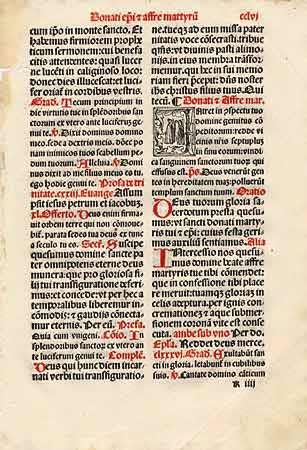 Donati epĩ ⁊ affre martyrũ cclvi
cum ip̃o in monte sancto. Et
habemus firmiorem prophe
ticum sermonem cui benefa
citis attendentes: quasi
lucerne lucẽti in caliginoso loco:
donec dies illucescat et luci
fer oriaťˀ in cordibus vestris.
Grad. Tecum principium in
die virtutis tue in splendoribus san
ctorum ex vtero ante luciferum
genui te. ℣. Dixit dominus domino
meo. sede a dextris meis. donec
ponã inimicos tuos scabellum pe
dum tuorum. Alleluia. ℣. Domi
nus dixit ad me filius meus es
tu ego hodie genui te. Prosa
Euange. Assum
psit iesus petrum et iacobuz.
Offerto. Deus enim firma
uit orbem terre qui non cõmoue
bit̃. parata sedes tua deus ex tunc
a seculo tu es. Secr̃. Suscipe
quesumus domine sancte pa
ter omnipotens eterne deus
munera: que pro gloriosa fi
lij tui transfiguratione deferi
mus: et concede: vt per hec a
temporalibus liberemur in
cõmodis: ⁊ gaudijs cõnecta
mur eternis. Per eũ. Prefa.
Quia cum vnigeni. Cõio. In
splendoribus sanctoꝝ ex vtero an
te luciferum genui te. Complẽ.
Deus qui hunc diem incar
nati verbi tui transfiguratio
ne: ad eum missa pater
nitatis voce cõsecrasti: tribue
qs̃: vt diuinis pasti alimo
nijs. in eius membra trãsfor
memur. qui hec in sui memo
riam fieri p̃cepit: dñs noster
iesus christus filius tuus. Qui
tecũ. Donati ⁊ Affre mar.
Intret in cõspectu tuo
domine gemitus cõ
peditorum: redde vi
cinis nr̃is septuplum
in sinu eorum: vindi
ca sanguinem sanctorum tuoꝝ qui
effusus est. p̃s. Deus venerũt gen
tes in hereditatem tuã: polluerũt
templum sanctum tuum. Oratio
Deus tuorum gloria sa
cerdotum presta quesu
mus: vt sancti donati marty
ris tui ⁊ ep̃i: cuius festa geri
mus auxiliũ sentiamus. Alia
Intercessio nos quesu
mus domine beate affre
martyris tue tibi cõmendet:
que in confessione tibi place
re meruit: tuamqꝫ gloriam in
celis accepturã. per ignis con
cremationes: ⁊ aque submer
sionem corona vite est conse
cuta. ambe sub vno Per do.
Ep̃la. Reddet deus merce.
clxxxvi. Grad. Exultabũt san
cti in gloria. letabunť in cubilibus
suis. ℣. Cantate domino cãticum
R iiij